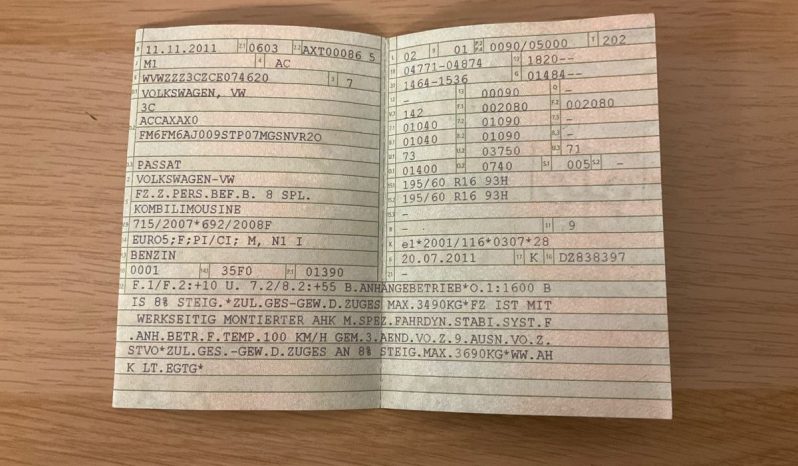 11.11.2011 0603 AXT00086 5
M1 AC
WVWZZZ3CZCE074620 7
VOLKSWAGEN, VW
3C
ACCAXAX0
FM6FM6AJ009STP07MGSNVR2O
PASSAT
VOLKSWAGEN-VW
FZ.Z.PERS.BEF.B. 8 SPL.
KOMBILIMOUSINE
715/2007*692/2008F
EURO5;F;PI/CI; M, N1 I
BENZIN
0001 35F0 01390
02 01 0090/05000 202
04771-04874 1820--
1464-1536 01484--
- 00090 -
142 002080 002080
01040 01090 -
01040 01090 -
73 03750 71
01400 0740 005 -
195/60 R16 93H
195/60 R16 93H
-
- 9
e1*2001/116*0307*28
20.07.2011 K DZ838397
-
F.1/F.2:+10 U. 7.2/8.2:+55 B.ANHÄNGEBETRIEB*O.1:1600 B
IS 8% STEIG.*ZUL.GES-GEW.D.ZUGES MAX.3490KG*FZ IST MIT
WERKSEITIG MONTIERTER AHK M.SPEZ.FAHRDYN.STABI.SYST.F
.ANH.BETR.F.TEMP.100 KM/H GEM.3.AEND.VO.Z.9.AUSN.VO.Z.
STVO*ZUL.GES.-GEW.D.ZUGES AN 8% STEIG.MAX.3690KG*WW.AH
K LT.EGTG*